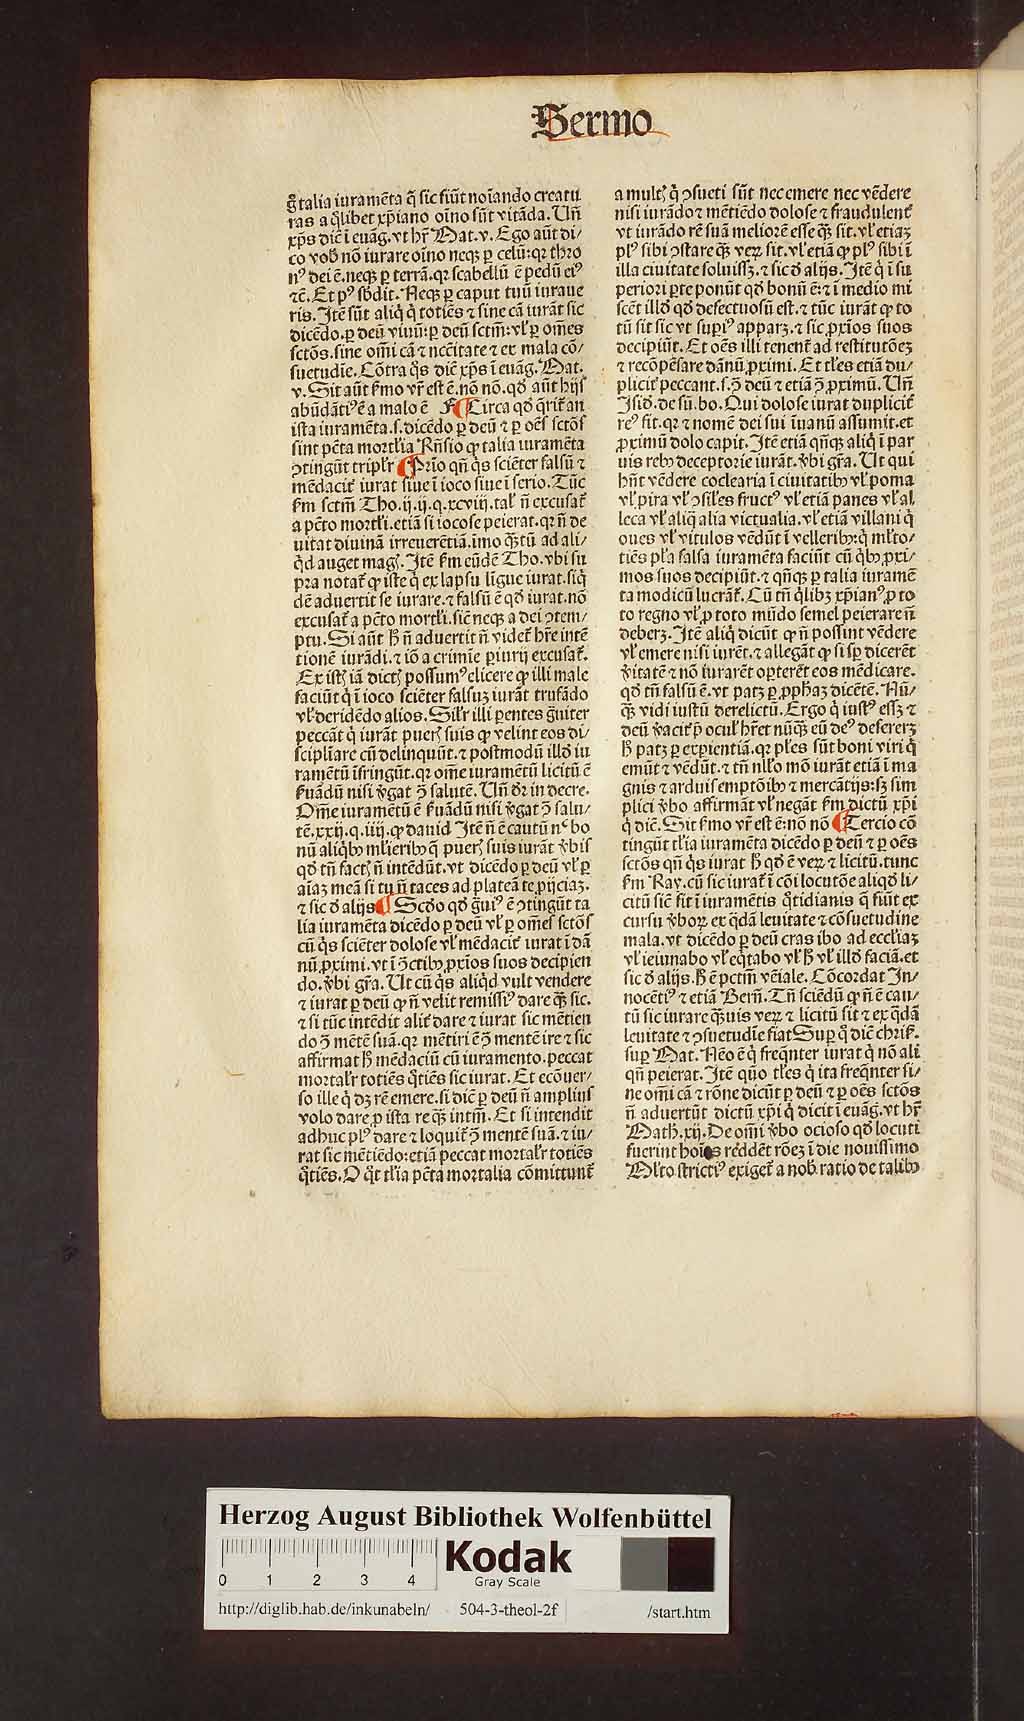 Sermo
g̃ talia iuramēta q̃ sic fiūt noĩando creatu
ras a q̃libet xp̃iano oĩno sũt vitãda. Uñ
xp̃s diẽ ĩ euãg. vt hr̃ Mat. v. Ego aũt di/
co vob̃ nõ iurare oĩno neqꝫ ꝑ celũ: qꝛ thro
nꝰ dei ẽ. neqꝫ ꝑ terrã. qꝛ scabellũ ẽ pedũ eiꝰ
ꝛc̃. Et pꝰ sb̃dit. Neqꝫ ꝑ caput tuũ iuraue
ris. Itẽ sũt aliq̃ q̇ totiẽs ⁊ sine cã iurãt sic
dicẽdo. ꝑ deũ viuũ: ꝑ deũ sctm̃: vl̓ ꝑ om̃es
sctõs. sine om̃i cã ⁊ nccẽitate ⁊ ex mala cõ/
suetudie. Cõtra q̃s diẽ xp̃s ĩ euãg. Mat.
v. Sit aũt ẜmo vr̃ est ẽ. nõ nõ. qd̃ aũt hijs
abũdãtiꝰ ẽ a malo ẽ F ¶ Circa qd̃ q̃rit̃ an
ista iuramẽta. s. dicẽdo ꝑ deũ ⁊ ꝑ oẽs sctõs
sint pc̃ta mortl̃ia Rñsio ꝙ talia iuramẽta
ↄtingũt tripl̃r ¶ Prĩo qñ q̃s sciẽter falsũ ⁊
mẽdacit̃ iurat siue ĩ ioco siue ĩ serio. Tũc
ẜm sctm̃ Tho. ij. ij. q. xcviij. tal̃ ñ excusat̃
a pc̃to mortl̃i. etiã si iocose peierat. qꝛ ñ de
uitat diuinã irreuerẽtiã. ĩmo q̃tũ ad ali/
q̃d auget magꝭ. Itẽ ẜm eũdẽ Tho. vbi su
pra notat̃ ꝙ iste q̇ ex lapsu lĩgue iurat. siq̃
dẽ aduertit se iurare. ⁊ falsũ ẽ qd̃ iurat. nõ
excusat̃ a pc̃to mortl̃i. sic̃ neqꝫ a dei ↄtem/
ptu. Si aũt h̃ ñ aduertit ñ videt̃ hr̃e intẽ
tionẽ iurãdi. ⁊ iõ a crimĩe ꝑiurij excusat̃.
Ex istꝭ iã dictꝭ possumꝰ elicere ꝙ illi male
faciũt q̇ ĩ ioco sciẽter falsuꝫ iurãt trufãdo
vl̓ deridẽdo alios. Sil̃r illi ꝑentes g̃uiter
peccãt q̇ iurãt puerꝭ suis ꝙ velint eos di/
sciplĩare cũ delinquũt. ⁊ postmodũ illd̃ iu
ramẽtũ ĩfringũt. qꝛ om̃e iuramẽtũ licitũ ẽ
ẜuãdũ nisi v̓gat ↄ̃ salutẽ. Uñ dr̃ in decre.
Om̃e iuramẽtũ ẽ ẜuãdũ nisi v̓gat ↄ̃ salu/
tẽ. xxij. q. iiij. ꝙ dauid Itẽ ñ ẽ cautũ nꝰ bo
nũ aliqb̃ mlierib̃ q̃ puerꝭ suis iurãt v̓bis
qd̃ tñ factꝭ ñ intẽdũt. vt dicẽdo ꝑ deũ vl̓ ꝑ
aĩaꝫ meã si tu ñ taces ad plateã te ꝓijciaꝫ.
⁊ sic d̃ alijs ¶ Scd̃o qd̃ g̃uiꝰ ẽ ↄtingũt ta
lia iuramẽta dicẽdo ꝑ deũ vl̓ ꝑ om̃es sctõs
cũ q̃s sciẽter dolose vl̓ mẽdacit̃ iurat ĩ dã
nũ ꝓximi. vt ĩ ↄ̃ctibꝰ ꝓxĩos suos decipien
do. v̓bi gr̃a. Ut cũ q̃s aliq̃d vult vendere
⁊ iurat ꝑ deũ ꝙ ñ velit remissiꝰ dare q̃ꝫ sic.
⁊ si tũc intẽdit alit̃ dare ⁊ iurat sic mẽtien
do ↄ̃ mẽtẽ suã. qꝛ mẽtiri ẽ ↄ̃ mentẽ ire ⁊ sic
affirmat h̃ mẽdaciũ cũ iuramento. peccat
mortal̃r totiẽs q̃tiẽs sic iurat. Et ecõuer/
so ille q̇ dꝫ rẽ emere. si diẽ ꝑ deũ ñ amplius
volo dare ꝓ ista re q̃ꝫ intm̃. Et si intendit
adhuc plꝰ dare ⁊ loquit̃ ↄ̃ mentẽ suã. ⁊ iu/
rat sic mẽtiẽdo: etiã peccat mortal̃r totiẽs
q̃tiẽs. O q̃t tl̃ia pc̃ta mortalia cõmittunt̃
a multꝭ q̇ ↄsueti sũt nec emere nec vẽdere
nisi iurãdo ⁊ mẽtiẽdo dolose ⁊ fraudulent̃
vt iurãdo rẽ suã meliorẽ esse q̃ꝫ sit. vl̓ etiaꝫ
plꝰ sibi ↄstare q̃ꝫ veꝝ sit. vl̓ etiã ꝙ plꝰ sibi ĩ
illa ciuitate soluissꝫ. ⁊ sic d̃ alijs. Itẽ q̇ ĩ su
periori ꝑte ponũt qd̃ bonũ ẽ: ⁊ ĩ medio mi
scẽt illd̃ qd̃ defectuosũ est. ⁊ tũc iurãt ꝙ to
tũ sit sic vt supiꝰ apparꝫ. ⁊ sic ꝓxĩos suos
decipiũt. Et oẽs illi tenent̃ ad restitutõeꝫ
⁊ recõpẽsare dãnũ ꝓximi. Et tl̃es etiã du/
plicit̃ peccant. s. ↄ̃ deũ ⁊ etiã ↄ̃ ꝓximũ. Uñ
Isid̃. de sũ. bo. Qui dolose iurat duplicit̃
reꝰ fit. qꝛ ⁊ nomẽ dei sui ĩ vanũ assumit. et
ꝓximũ dolo capit. Itẽ etiã qñqꝫ aliq̇ ĩ par
uis rebꝰ deceptorie iurãt. v̓bi gr̃a. Ut qui
hñt vẽdere coclearia ĩ ciuitatibꝰ vl̓ poma
vl̓ pira vl̓ ↄsil̃es fructꝰ vl̓ etiã panes vl̓ al̓
leca vl̓ aliq̃ alia victualia. vl̓ etiã villani q̇
oues vl̓ vitulos vẽdũt ĩ velleribꝰ: q̇ ml̃to/
tiẽs pl̃a falsa iuramẽta faciũt cũ qb̃ ꝓxi/
mos suos decipiũt. ⁊ qñqꝫ ꝑ talia iuramẽ
ta modicũ lucrãt̃. Cũ tñ q̃libꝫ xp̃ianꝰ ꝓ to
to regno vl̓ ꝓ toto mũdo semel peierare ñ
deberꝫ. Itẽ aliq̇ dicũt ꝙ ñ possint vẽdere
vl̓ emere nisi iurẽt. ⁊ allegãt ꝙ si sp̃ dicerẽt
v̓itatẽ ⁊ nõ iurarẽt oꝑterẽt eos mẽdicare.
qd̃ tñ falsũ ẽ. vt patꝫ ꝑ ꝓph̃aꝫ dicẽtẽ. Nũ/
q̃ꝫ vidi iustũ derelictũ. Ergo q̇ iustꝰ essꝫ ⁊
deũ v̓acit̃ p̃ ocul̓ hr̃et nũq̃ꝫ eũ deꝰ desererꝫ
h̃ patꝫ ꝑ exꝑientiã. qꝛ pl̃es sũt boni viri q̇
emũt ⁊ vẽdũt. ⁊ tñ nl̃lo mõ iurãt etiã ĩ ma
gnis ⁊ arduis emptõibꝰ ⁊ mercãtijs: sꝫ sim
plici v̓bo affirmãt vl̓ negãt ẜm dictũ xp̃i
q̇ diẽ. Sit ẜmo vr̃ est ẽ: nõ nõ ¶ Tercio cõ
tingũt tl̃ia iuramẽta dicẽdo ꝑ deũ ⁊ ꝑ oẽs
sctõs qñ q̃s iurat h̃ qd̃ ẽ veꝝ ⁊ licitũ. tunc
ẜm Ray. cũ sic iurat̃ ĩ cõi locutõe aliqd̃ li/
citũ sic̃ fit ĩ iuramẽtis q̃tidianis q̃ fiũt ex
cursu v̓boꝝ ex q̃dã leuitate ⁊ cõsuetudine
mala. vt dicẽdo ꝑ deũ cras ibo ad eccl̃iaꝫ
vl̓ ieiunabo vl̓ eq̃tabo vl̓ h̃ vl̓ illd̃ faciã. et
sic d̃ alijs. h̃ ẽ pctm̃ vẽiale. Cõcordat In/
nocẽtiꝰ ⁊ etiã Berñ. Tñ sciẽdũ ꝙ ñ ẽ cau/
tũ sic iurare q̃uis veꝝ ⁊ licitũ sit ⁊ ex q̃dã
leuitate ⁊ ↄsuetudĩe fiat Suꝑ q̇ diẽ chriẜ.
suꝑ Mat. Nẽo ẽ q̇ freq̃nter iurat q̇ nõ ali
qñ peierat. Itẽ quõ tl̃es q̇ ita freq̃nter si/
ne om̃i cã ⁊ rõne dicũt ꝑ deũ ⁊ ꝑ oẽs sctõs
ñ aduertũt dictũ xp̃i q̇ dicit ĩ euãg. vt hr̃
Math. xij. De om̃i v̓bo ocioso qd̃ locuti
fuerint hoĩes reddẽt rõeꝫ ĩ die nouissimo
Ml̃to strictiꝰ exiget̃ a nob̃ ratio de talibꝰ
Herzog August Bibliothek Wolfenbüttel
0 1 2 3 4
Kodak
Gray Scale
http://diglib.hab.de/inkunabeln/ 504-3-theol-2f /start.htm